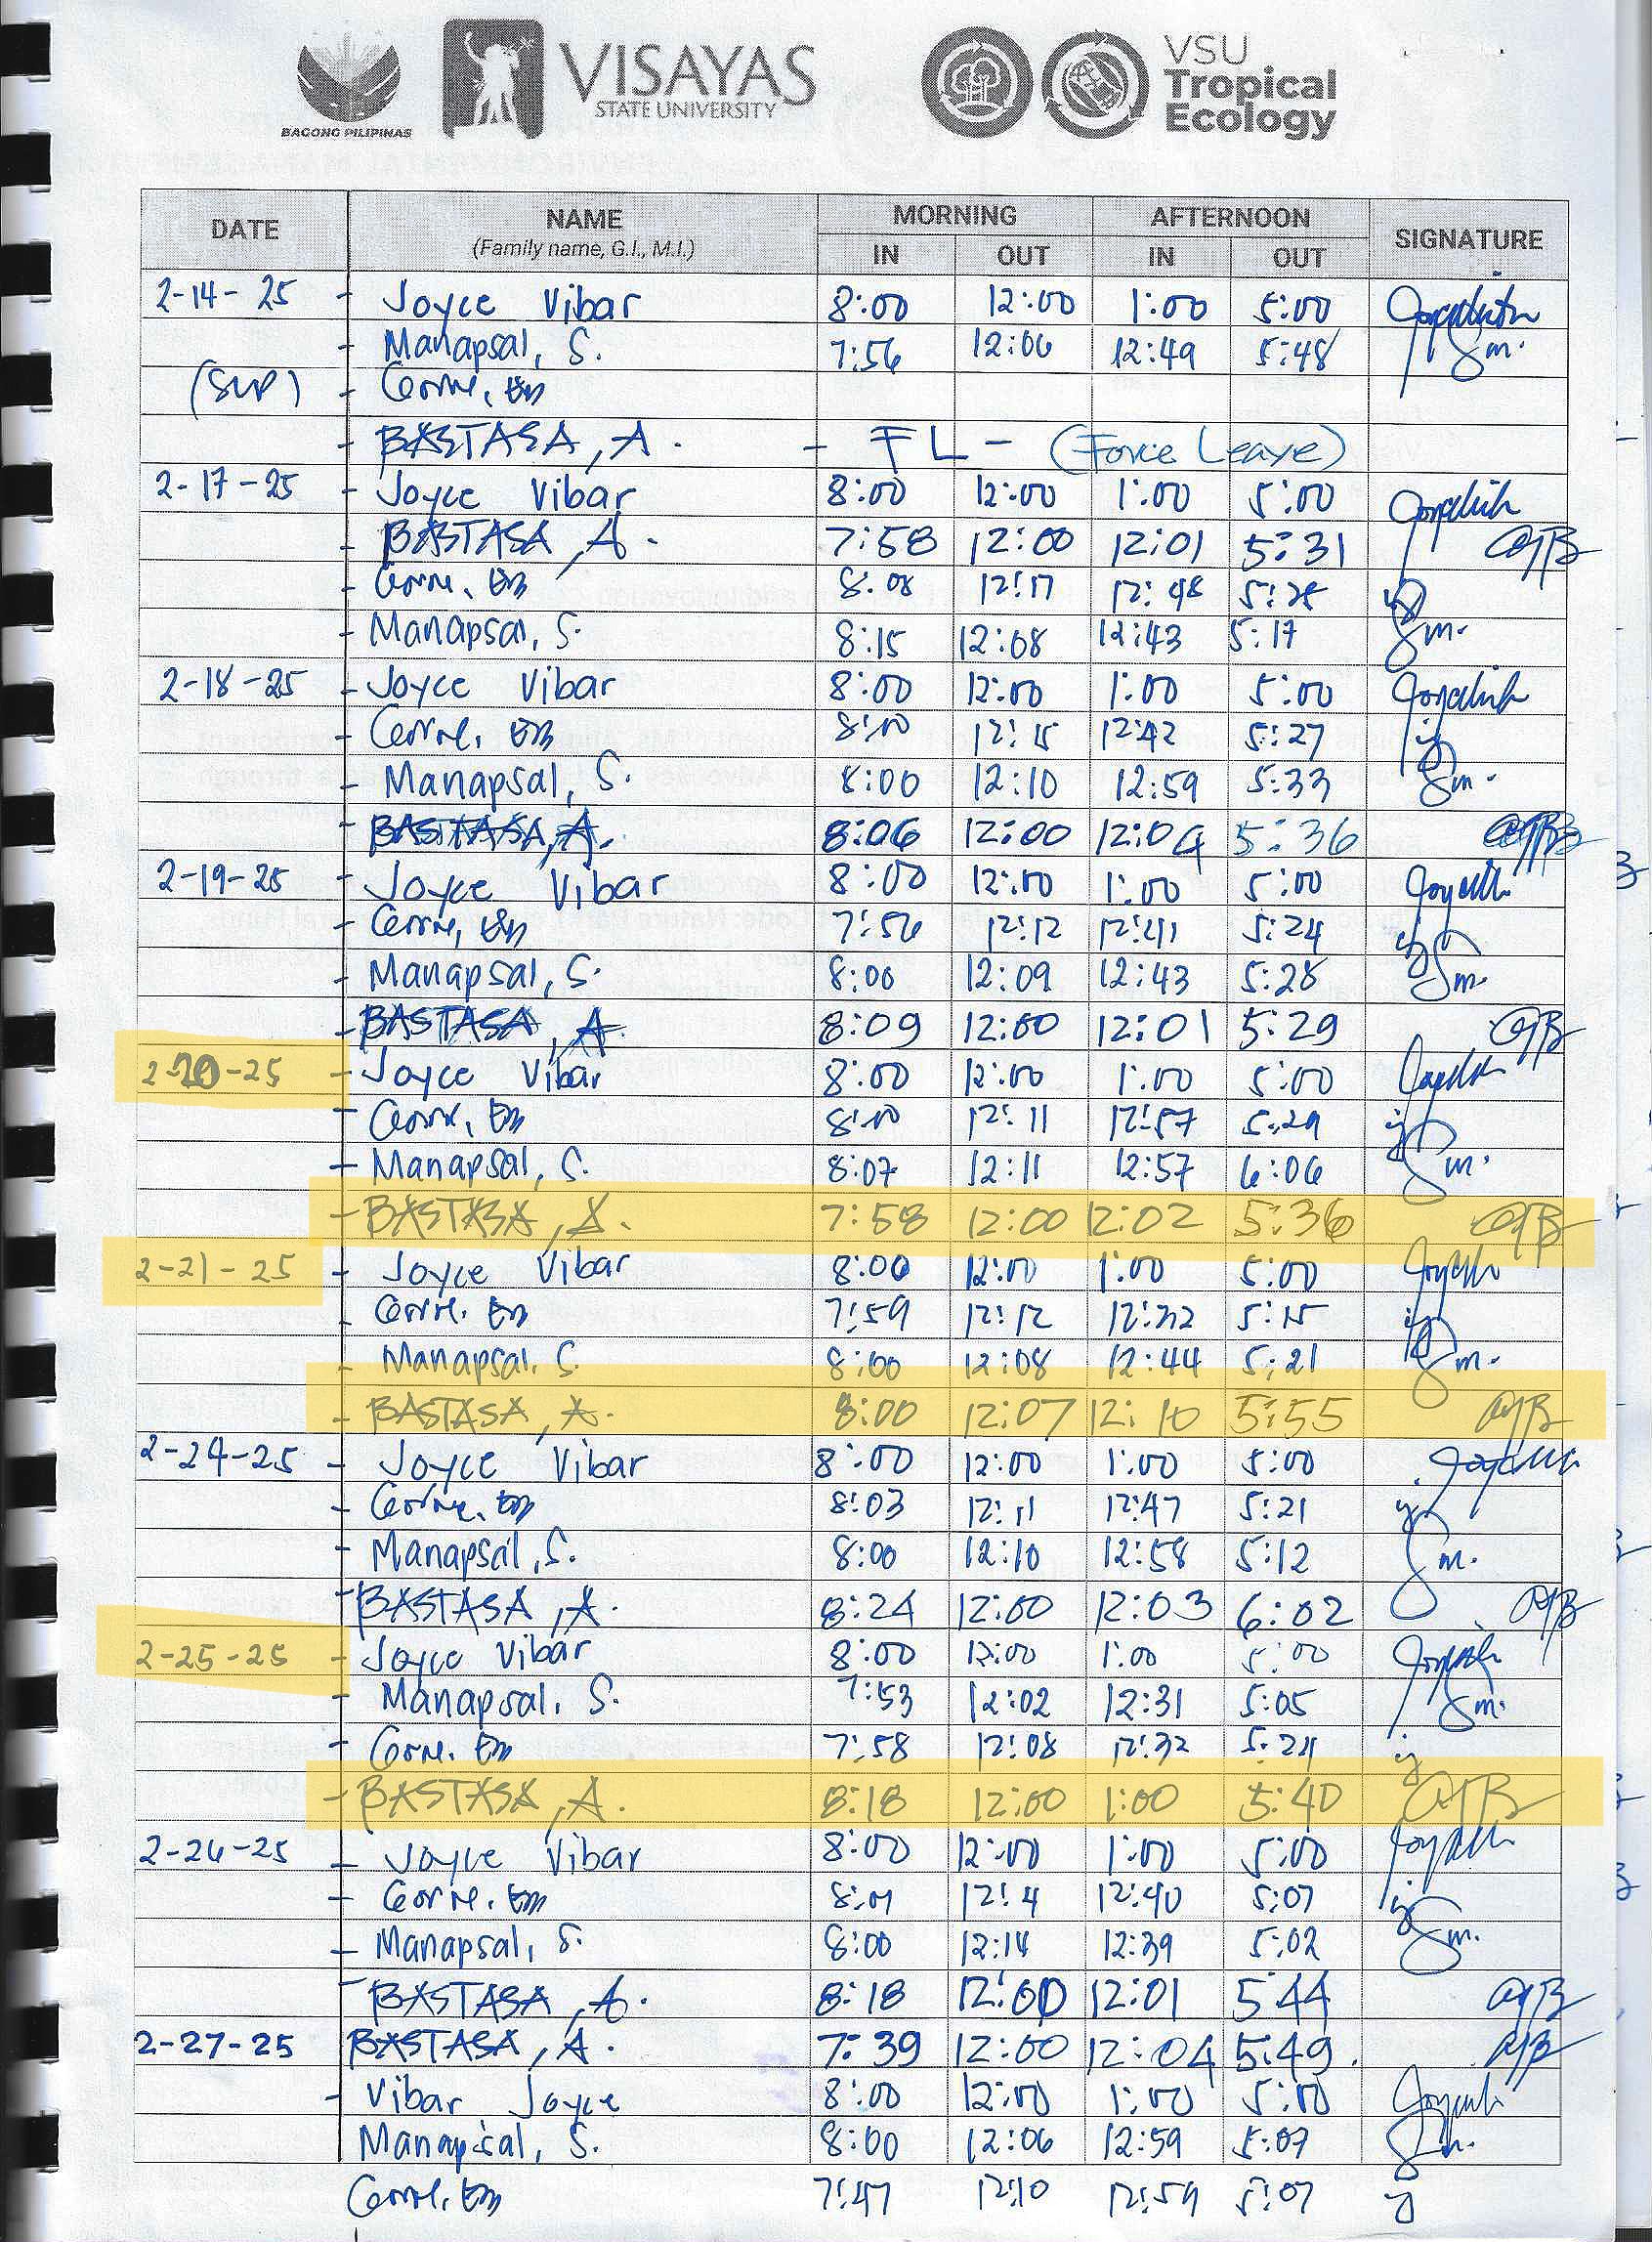 BAGONG PILIPINAS
VISAYAS
STATE UNIVERSITY
VSU
Tropical
Ecology
DATE NAME (Family name, G.I., M.I.) MORNING IN OUT AFTERNOON IN OUT SIGNATURE
2-14-25 - Joyce Vibar 8:00 12:00 1:00 5:00
- Manapsal, S. 7:56 12:06 12:49 5:48 Sm.
(SLP) -
- BASTASA, A. - FL - (Force Leave)
2-17-25 - Joyce Vibar 8:00 12:00 1:00 5:00
- BASTASA, A. 7:58 12:00 12:01 5:31
- 8:08 12:17 12:48 5:28
- Manapsal, S. 8:15 12:08 12:43 5:17 Sm.
2-18-25 - Joyce Vibar 8:00 12:00 1:00 5:00
- 8:10 12:15 12:42 5:27
- Manapsal, S. 8:00 12:10 12:59 5:33 Sm.
- BASTASA, A. 8:06 12:00 12:04 5:36
2-19-25 - Joyce Vibar 8:00 12:00 1:00 5:00
- 7:56 12:12 12:41 5:24
- Manapsal, S. 8:00 12:09 12:43 5:28 Sm.
- BASTASA, A 8:09 12:00 12:01 5:29
2-20-25 - Joyce Vibar 8:00 12:00 1:00 5:00
- 8:10 12:11 12:57 5:29
- Manapsal, S. 8:07 12:11 12:57 6:06 Sm.
- BASTASA, A. 7:58 12:00 12:02 5:36
2-21-25 - Joyce Vibar 8:00 12:00 1:00 5:00
- 7:59 12:12 12:32 5:15
- Manapsal, S 8:00 12:08 12:44 5:21 Sm.
- BASTASA, A. 8:00 12:07 12:10 5:55
2-24-25 - Joyce Vibar 8:00 12:00 1:00 5:00
- 8:03 12:11 12:47 5:21
- Manapsal, S. 8:00 12:10 12:58 5:12 Sm.
- BASTASA, A. 8:24 12:00 12:03 6:02
2-25-25 - Joyce Vibar 8:00 12:00 1:00 5:00
- Manapsal, S. 7:53 12:02 12:31 5:05 Sm.
- 7:58 12:08 12:32 5:24
- BASTASA, A. 8:18 12:00 1:00 5:40
2-26-25 - Joyce Vibar 8:00 12:00 1:00 5:00
- 8:01 12:4 12:40 5:07
- Manapsal, S. 8:00 12:14 12:39 5:02 Sm.
- BASTASA, A. 8:18 12:00 12:01 5:44
2-27-25 BASTASA, A. 7:39 12:00 12:04 5:49.
- Vibar Joyce 8:00 12:00 1:00 5:00
Manapsal, S. 8:00 12:06 12:59 5:07
7:47 12:10 12:59 5:07